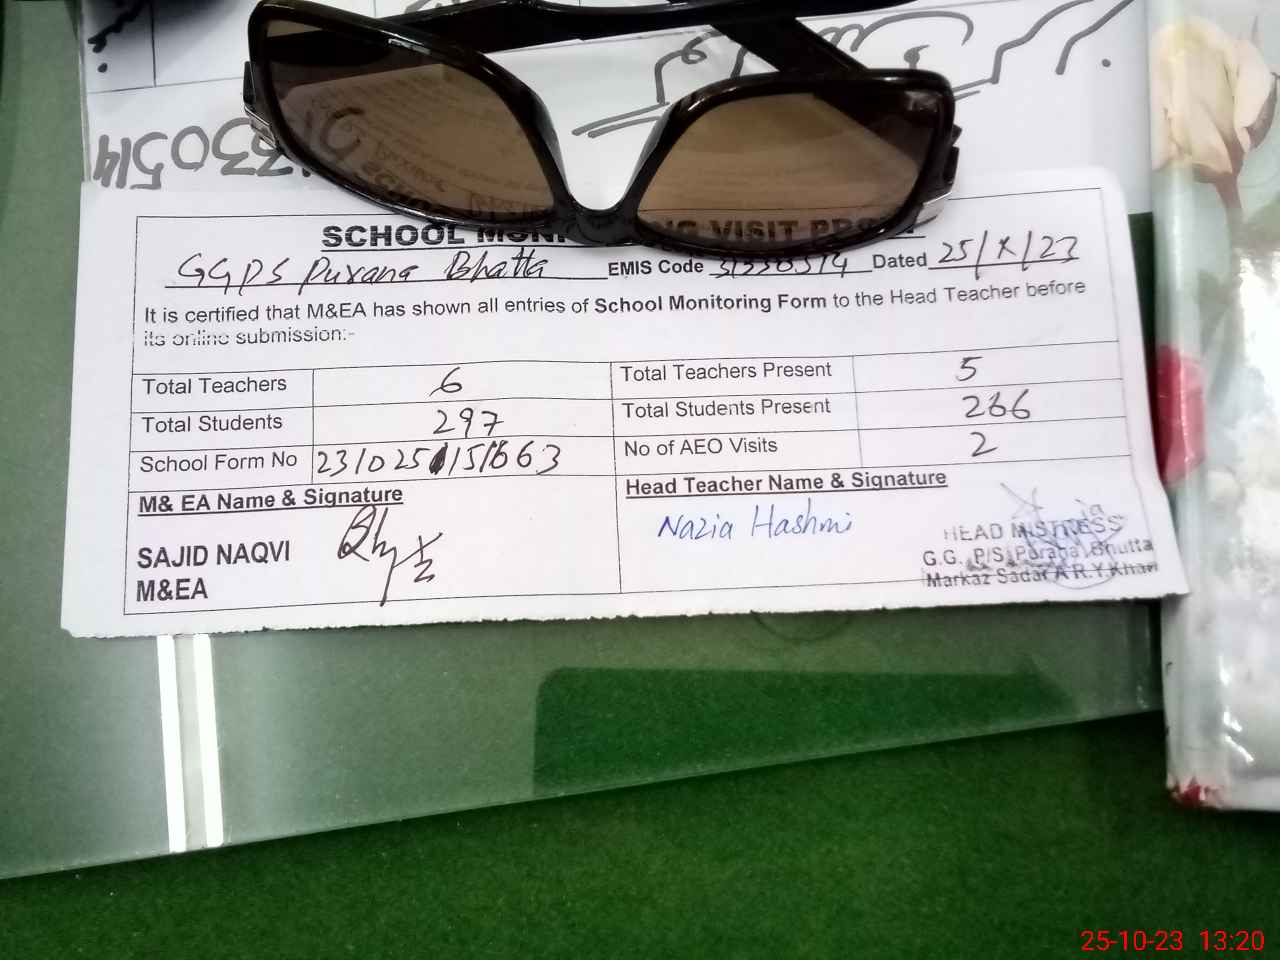 SCHOOL VISIT
GGPS Purana Bhatta EMIS Code 31330514 Dated 25/X/23
It is certified that M&EA has shown all entries of School Monitoring Form to the Head Teacher before
its online submission:-
Total Teachers 6 Total Teachers Present 5
Total Students 297 Total Students Present 266
School Form No No of AEO Visits 2
M& EA Name & Signature Head Teacher Name & Signature
SAJID NAQVI Nazia Hashmi
M&EA
HEAD MISTRESS
G.G. P/S Purana Bhutta
Markaz Sadar A R.Y.Khan
25-10-23 13:20